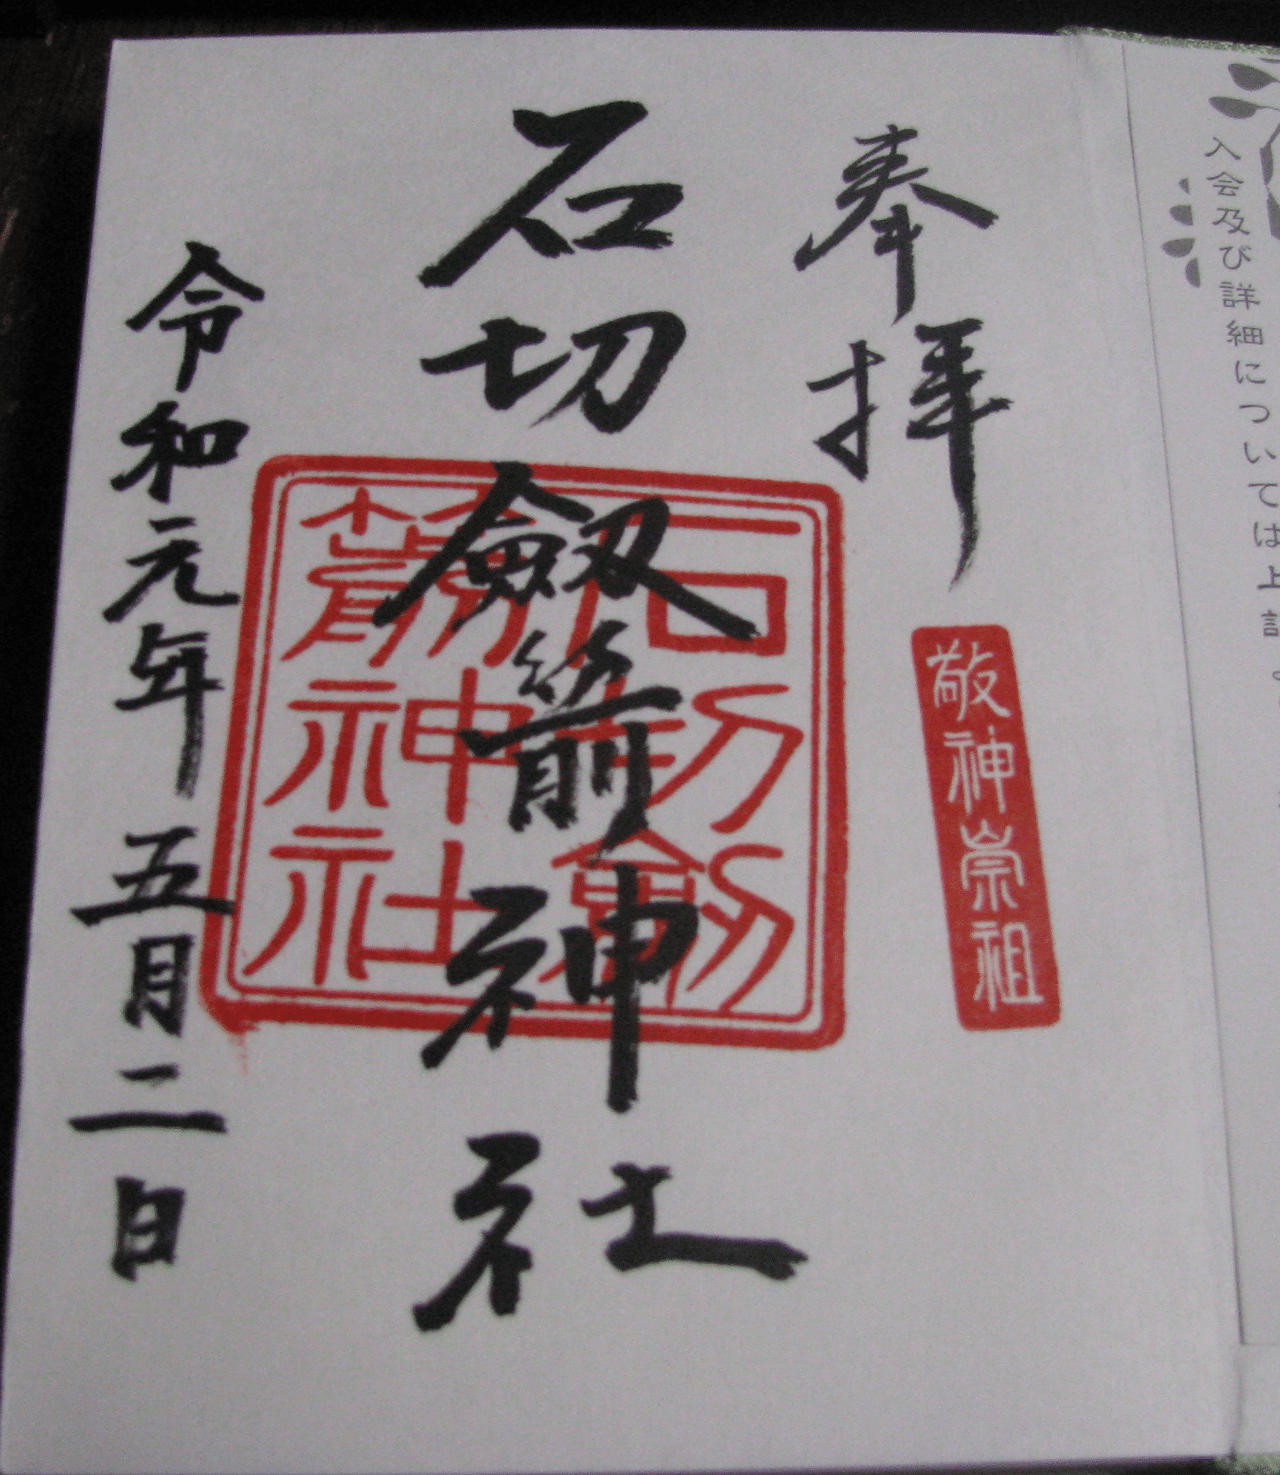 入会及び詳細については上記。
奉拝
敬神崇祖
石切劔箭神社
石切劔
箭神社
令和元年五月二日